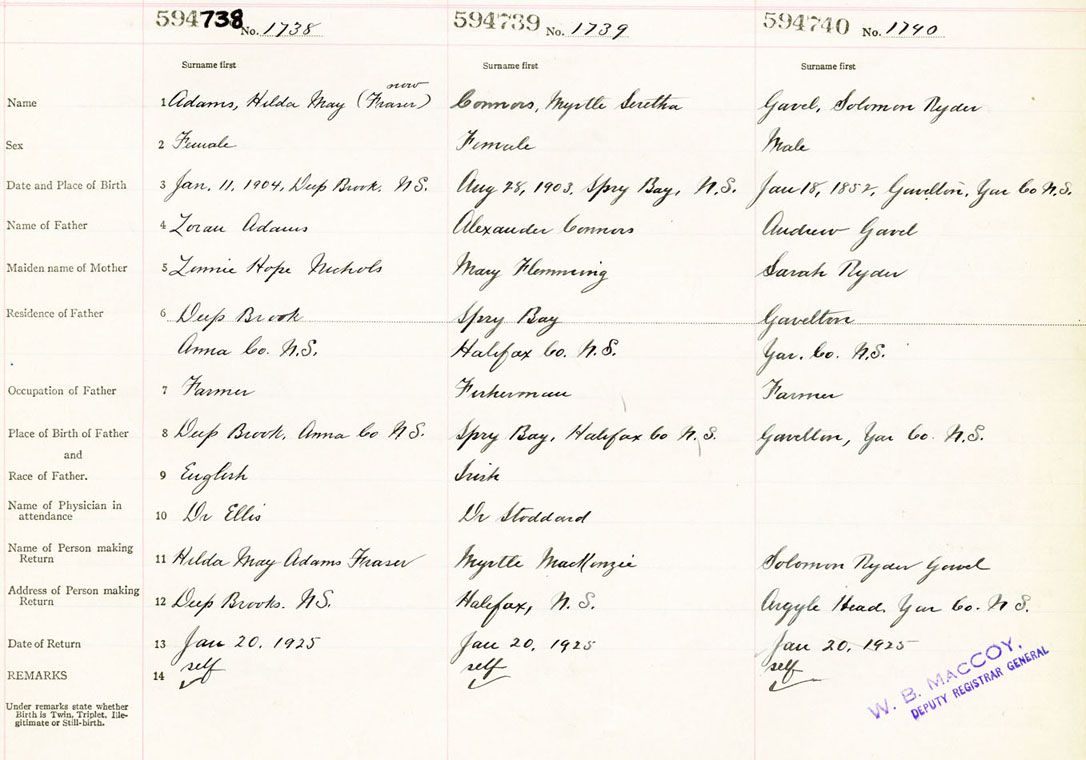 594738 No. 1738 594739 No. 1739 594740 No. 1740
Surname first Surname first Surname first
now
Name 1 Adams, Hilda May (Fraser) Connors, Myrtle Seretha Gavel, Solomon Ryder
Sex 2 Female Female Male
Date and Place of Birth 3 Jan. 11, 1904, Deep Brook. N.S. Aug 28, 1903, Spry Bay, N.S. Jan 18, 1852, Gavelton, Yar Co N.S.
Name of Father 4 Loran Adams Alexander Connors Andrew Gavel
Maiden name of Mother 5 Hope Nichols Mary Flemming Sarah Ryder
Residence of Father 6 Deep Brook Spry Bay Gavelton
Anna Co. N.S. Halifax Co. N.S. Yar. Co. N.S.
Occupation of Father 7 Farmer Fisherman Farmer
Place of Birth of Father 8 Deep Brook, Anna Co N.S. Spry Bay, Halifax Co N.S. Gavelton, Yar Co. N.S.
and
Race of Father. 9 English Irish
Name of Physician in
attendance 10 Dr Ellis Dr Stoddard
Name of Person making
Return 11 Hilda May Adams Fraser Myrtle MacKenzie Solomon Ryder Gavel
Address of Person making
Return 12 Deep Brook. N.S. Halifax, N.S. Argyle Head. Yar Co. N S.
Date of Return 13 Jan 20, 1925 Jan 20, 1925 Jan 20, 1925
REMARKS 14 self self self
W. B. MACCOY,
DEPUTY REGISTRAR GENERAL
Under remarks state whether
Birth is Twin, Triplet, Ille-
gitimate or Still-birth.